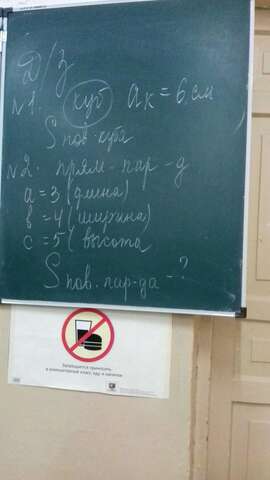 Д/З
№1. куб aк = 6 см
S пов. куба
№2. прям-пар-д
a = 3 (длина)
в = 4 (ширина)
c = 5 (высота
S пов. пар-да - ?
Запрещается приносить
в компьютерный класс еду и напитки